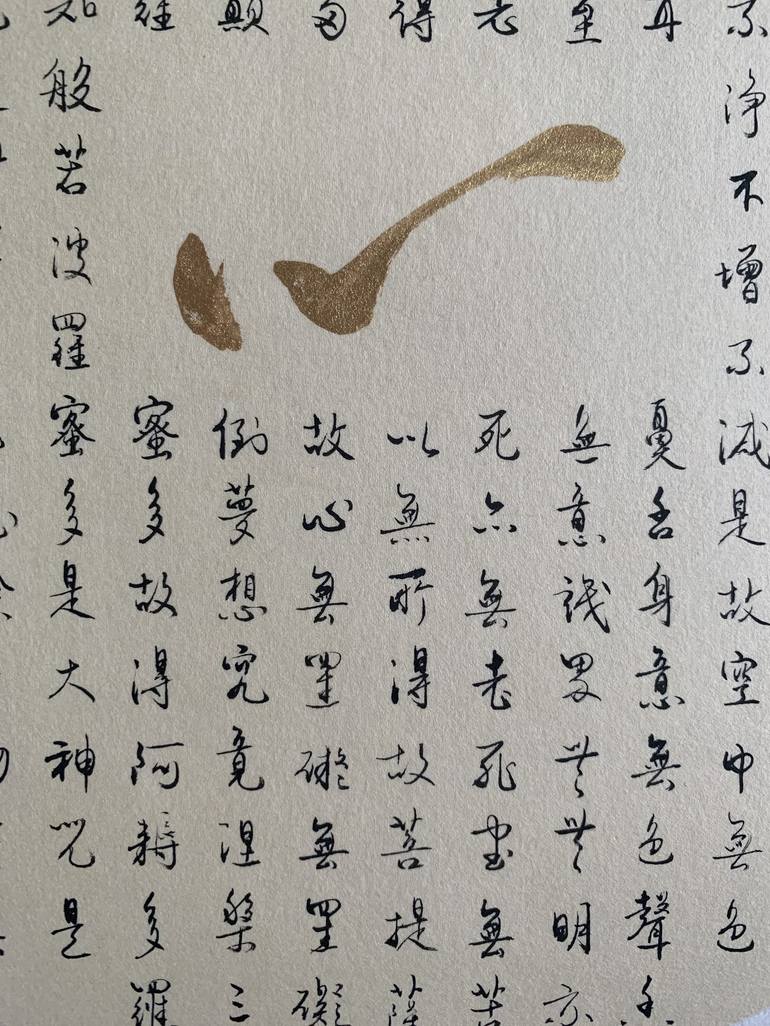 不淨不增不減是故空中無色
耳鼻舌身意無色聲香
至無意識界無無明亦
老死亦無老死盡無苦
得以無所得故菩提薩
多故心無罣礙無罣礙
顛倒夢想究竟涅槃三
羅蜜多故得阿耨多羅
知般若波羅蜜多是大神咒是
心